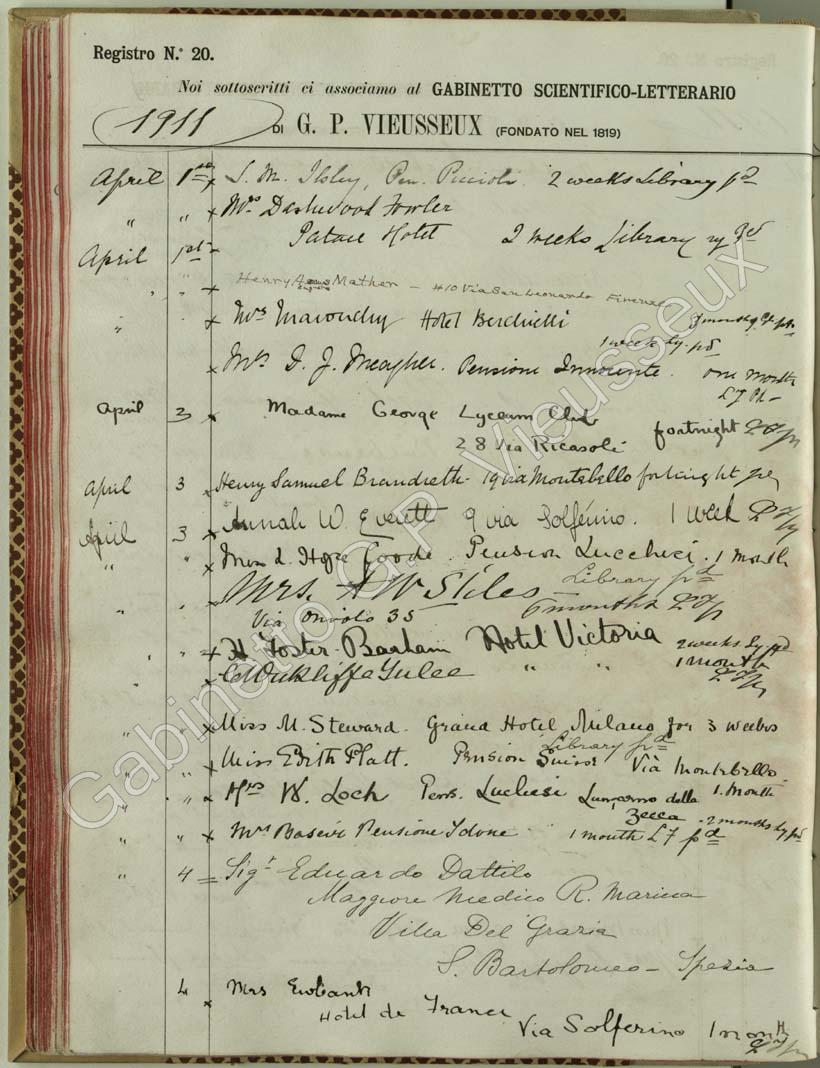 Registro N.° 20.
Noi sottoscritti ci associamo al GABINETTO SCIENTIFICO-LETTERARIO
1911 DI G. P. VIEUSSEUX (FONDATO NEL 1819)
April 1st S. M. Ilsley, Pen. Piccioli 2 weeks Library pd
" " Mrs Dashwood Fowler
Palace Hotel 2 weeks Library
April 1st
" " Henry Mather - 410 Via San Leonardo Firenze
" Mrs Hotel Berchielli
1 week Ly. pd
Mrs D. J. Meagher. Pensione Innocente. one month
April 3 Madame George Lyceum Club
28 Via Ricasoli fortnight
April 3 Henry Samuel Brandreth 19 via Montebello fortnight
April 3 Annah W. Everett 9 via Solferino. 1 week
" " L. Hope Goode. Pension Lucchesi. 1 month
Library pd
" " Mrs. A W Stiles
Via Oriolo 35 6 months
" " H Foster-Barham Hotel Victoria 2 weeks Ly pd
C Wickliffe Yulee " " 1 month
" " Miss M. Steward. Grand Hotel, Milano for 3 weeks
Library pd
" " Miss Edith Platt. Pension Suisse Via Montebello
" " Mrs W. Lock Pens. Luchesi Lungarno della 1. Month
Zecca - 2 months Ly pd
" " Mrs Basevi Pensione Idone 1 month £7 pd
" 4 Sigr Eduardo Dattilo
Maggiore Medico R. Marina
Villa Del Grazia
S. Bartolomeo - Spezia
4 Mrs Ewbank
Hotel de France
Via Solferino 1 month
Gabinetto G.P. Vieusseux